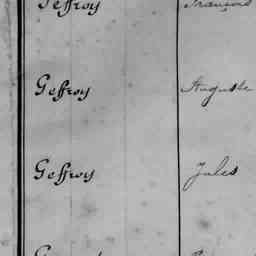 Geffroy François
Geffroy Auguste
Geffroy Jules